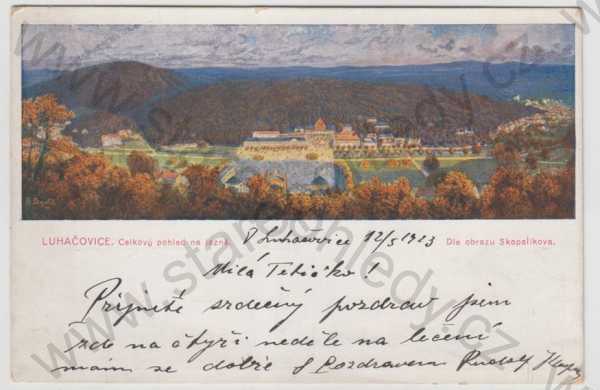 LUHAČOVICE. Celkový pohled na lázně. V Luhačovice 12/5 1923 Dle obrazu Skopalíkova.
Milá Tetičko!
Přijměte srdečný pozdrav jsem
zde na čtyři neděle na léčení
mám se dobře S Pozdravem Rudolf
www.starepohledy.cz